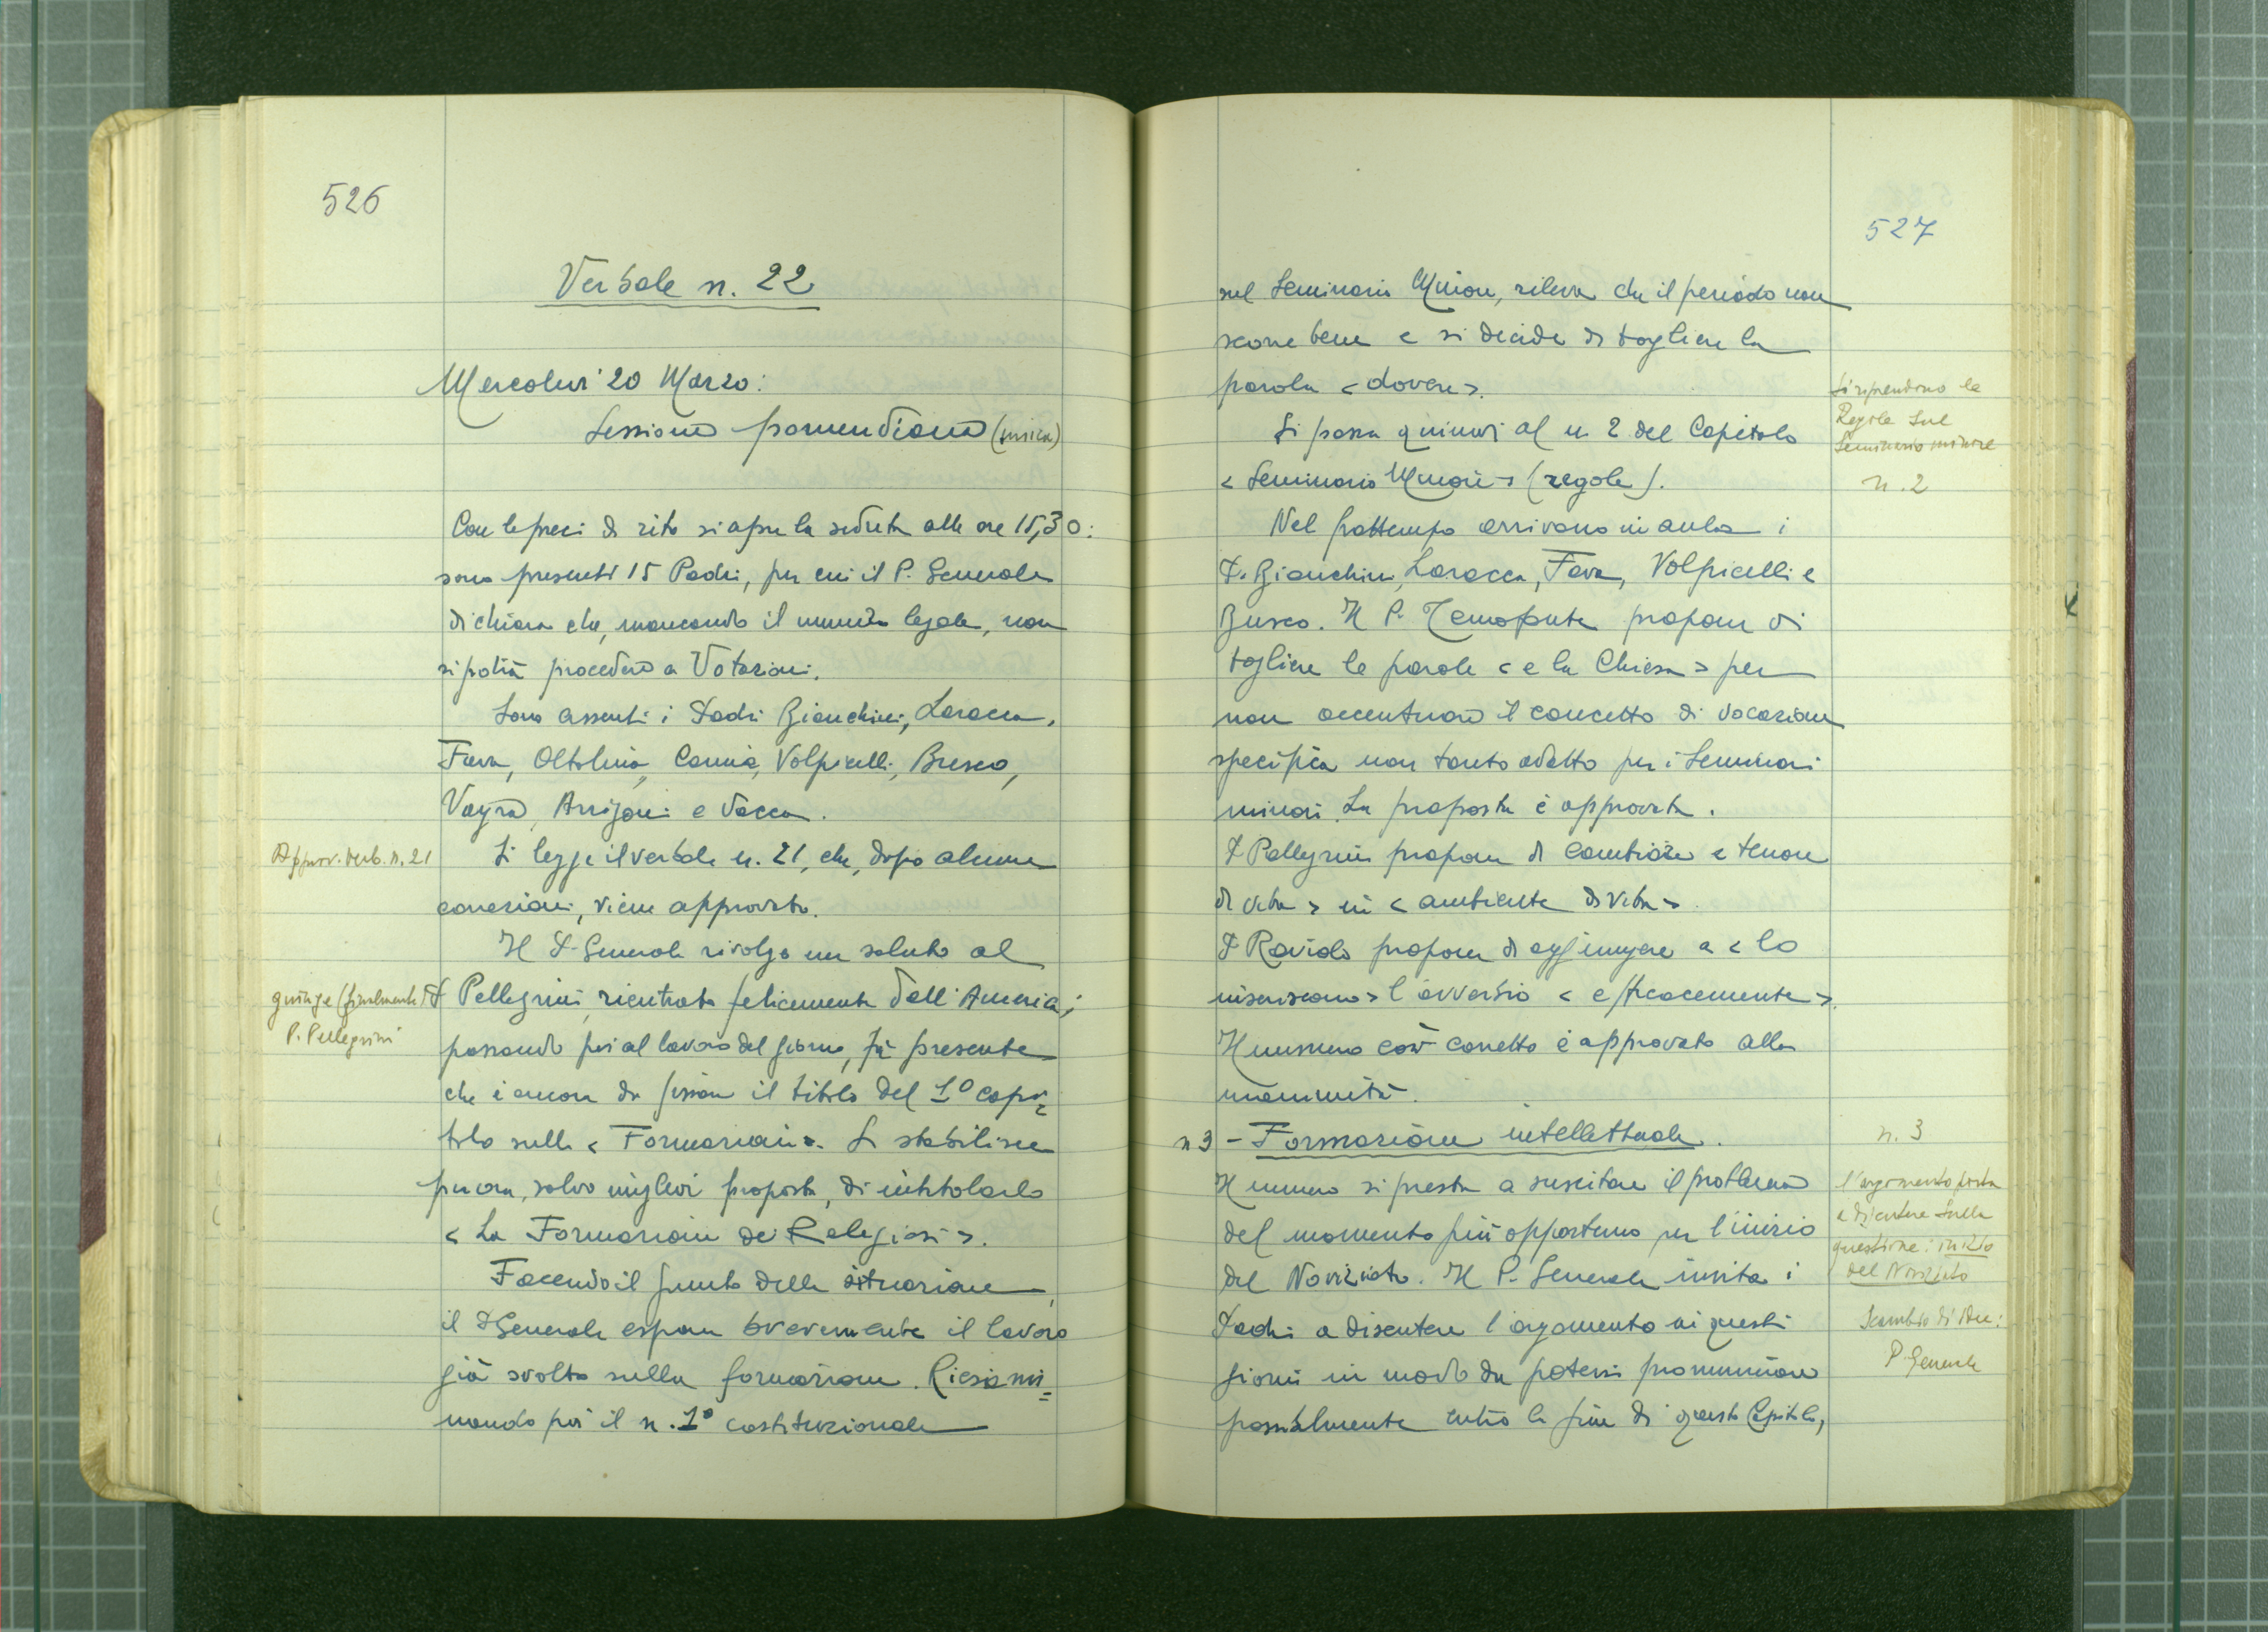 526
Verbale n. 22
Mercoledì 20 Marzo:
Sessione pomeridiana (unica)
Con le preci di rito si apre la seduta alle ore 15,30:
sono presenti 15 Padri, per cui il P. Generale
dichiara che, mancando il numero legale, non
si potrà procedere a Votazioni.
Sono assenti i Padri Bianchini, Laracca,
Fava, Oltolina, Camia, Volpicelli, Brusco,
Vayra, Arrigoni e Vacca.
Approv. verb. n. 21
Si legge il verbale n. 21, che, dopo alcune
correzioni, viene approvato.
Il P. Generale rivolge un saluto al
giunge (finalmente!)
P. Pellegrini
P. Pellegrini, rientrato felicemente dall'America;
passando poi al lavoro del giorno, fa presente
che è ancora da fissare il titolo del 1º capi=
tolo sulla « Formazione ». Si stabilisce
per ora, salvo migliori proposte, di intitolarlo
« La Formazione dei Religiosi ».
Facendo il punto della situazione,
il P. Generale espone brevemente il lavoro
già svolto sulla formazione. Riesami=
nando poi il n. 1º costituzionale
527
sul Seminario Minore, rileva che il periodo non
scorre bene e si decide di togliere la
parola « dovere ».
Si riprendono le
Regole sul
Seminario minore
n. 2
Si passa quindi al n 2 del Capitolo
« Seminario Minore » (regole).
Nel frattempo arrivano in aula i
P. Bianchini, Laracca, Fava, Volpicelli e
Brusco. Il P. Temofonte propone di
togliere le parole « e la Chiesa » per
non accentuare il concetto di vocazione
specifica non tanto adatto per i Seminari
minori. La proposta è approvata.
P Pellegrini propone di cambiare « tenore
di vita » in « ambiente di vita ».
P Raviolo propone di aggiungere a « lo
inseriscano » l'avverbio « efficacemente ».
Il numero così corretto è approvato alla
unanimità.
n 3 - Formazione intellettuale.
n. 3
Il numero si presta a suscitare il problema
del momento più opportuno per l'inizio
del Noviziato. Il P. Generale invita i
Padri a discutere l'argomento in questi
giorni in modo da potersi pronunciare
possibilmente entro la fine di questo Capitolo,
l'argomento porta
a discutere sulla
questione: inizio
del Noviziato
Scambio di idee:
P. Generale